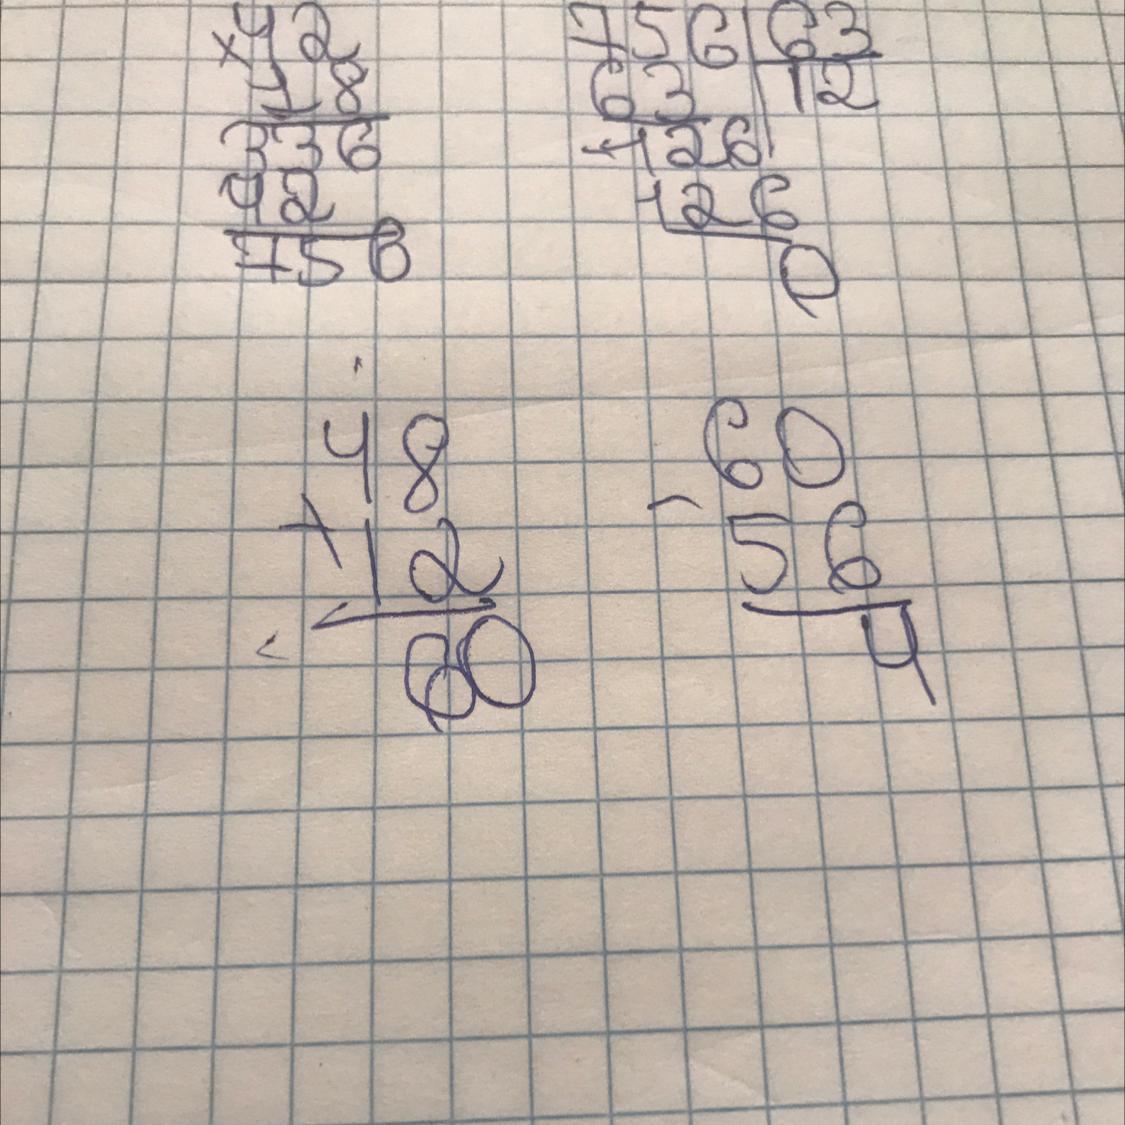 ×42
18
336
42
756
756|63
63 12
126
126
0
48
+12
60
60
-56
4